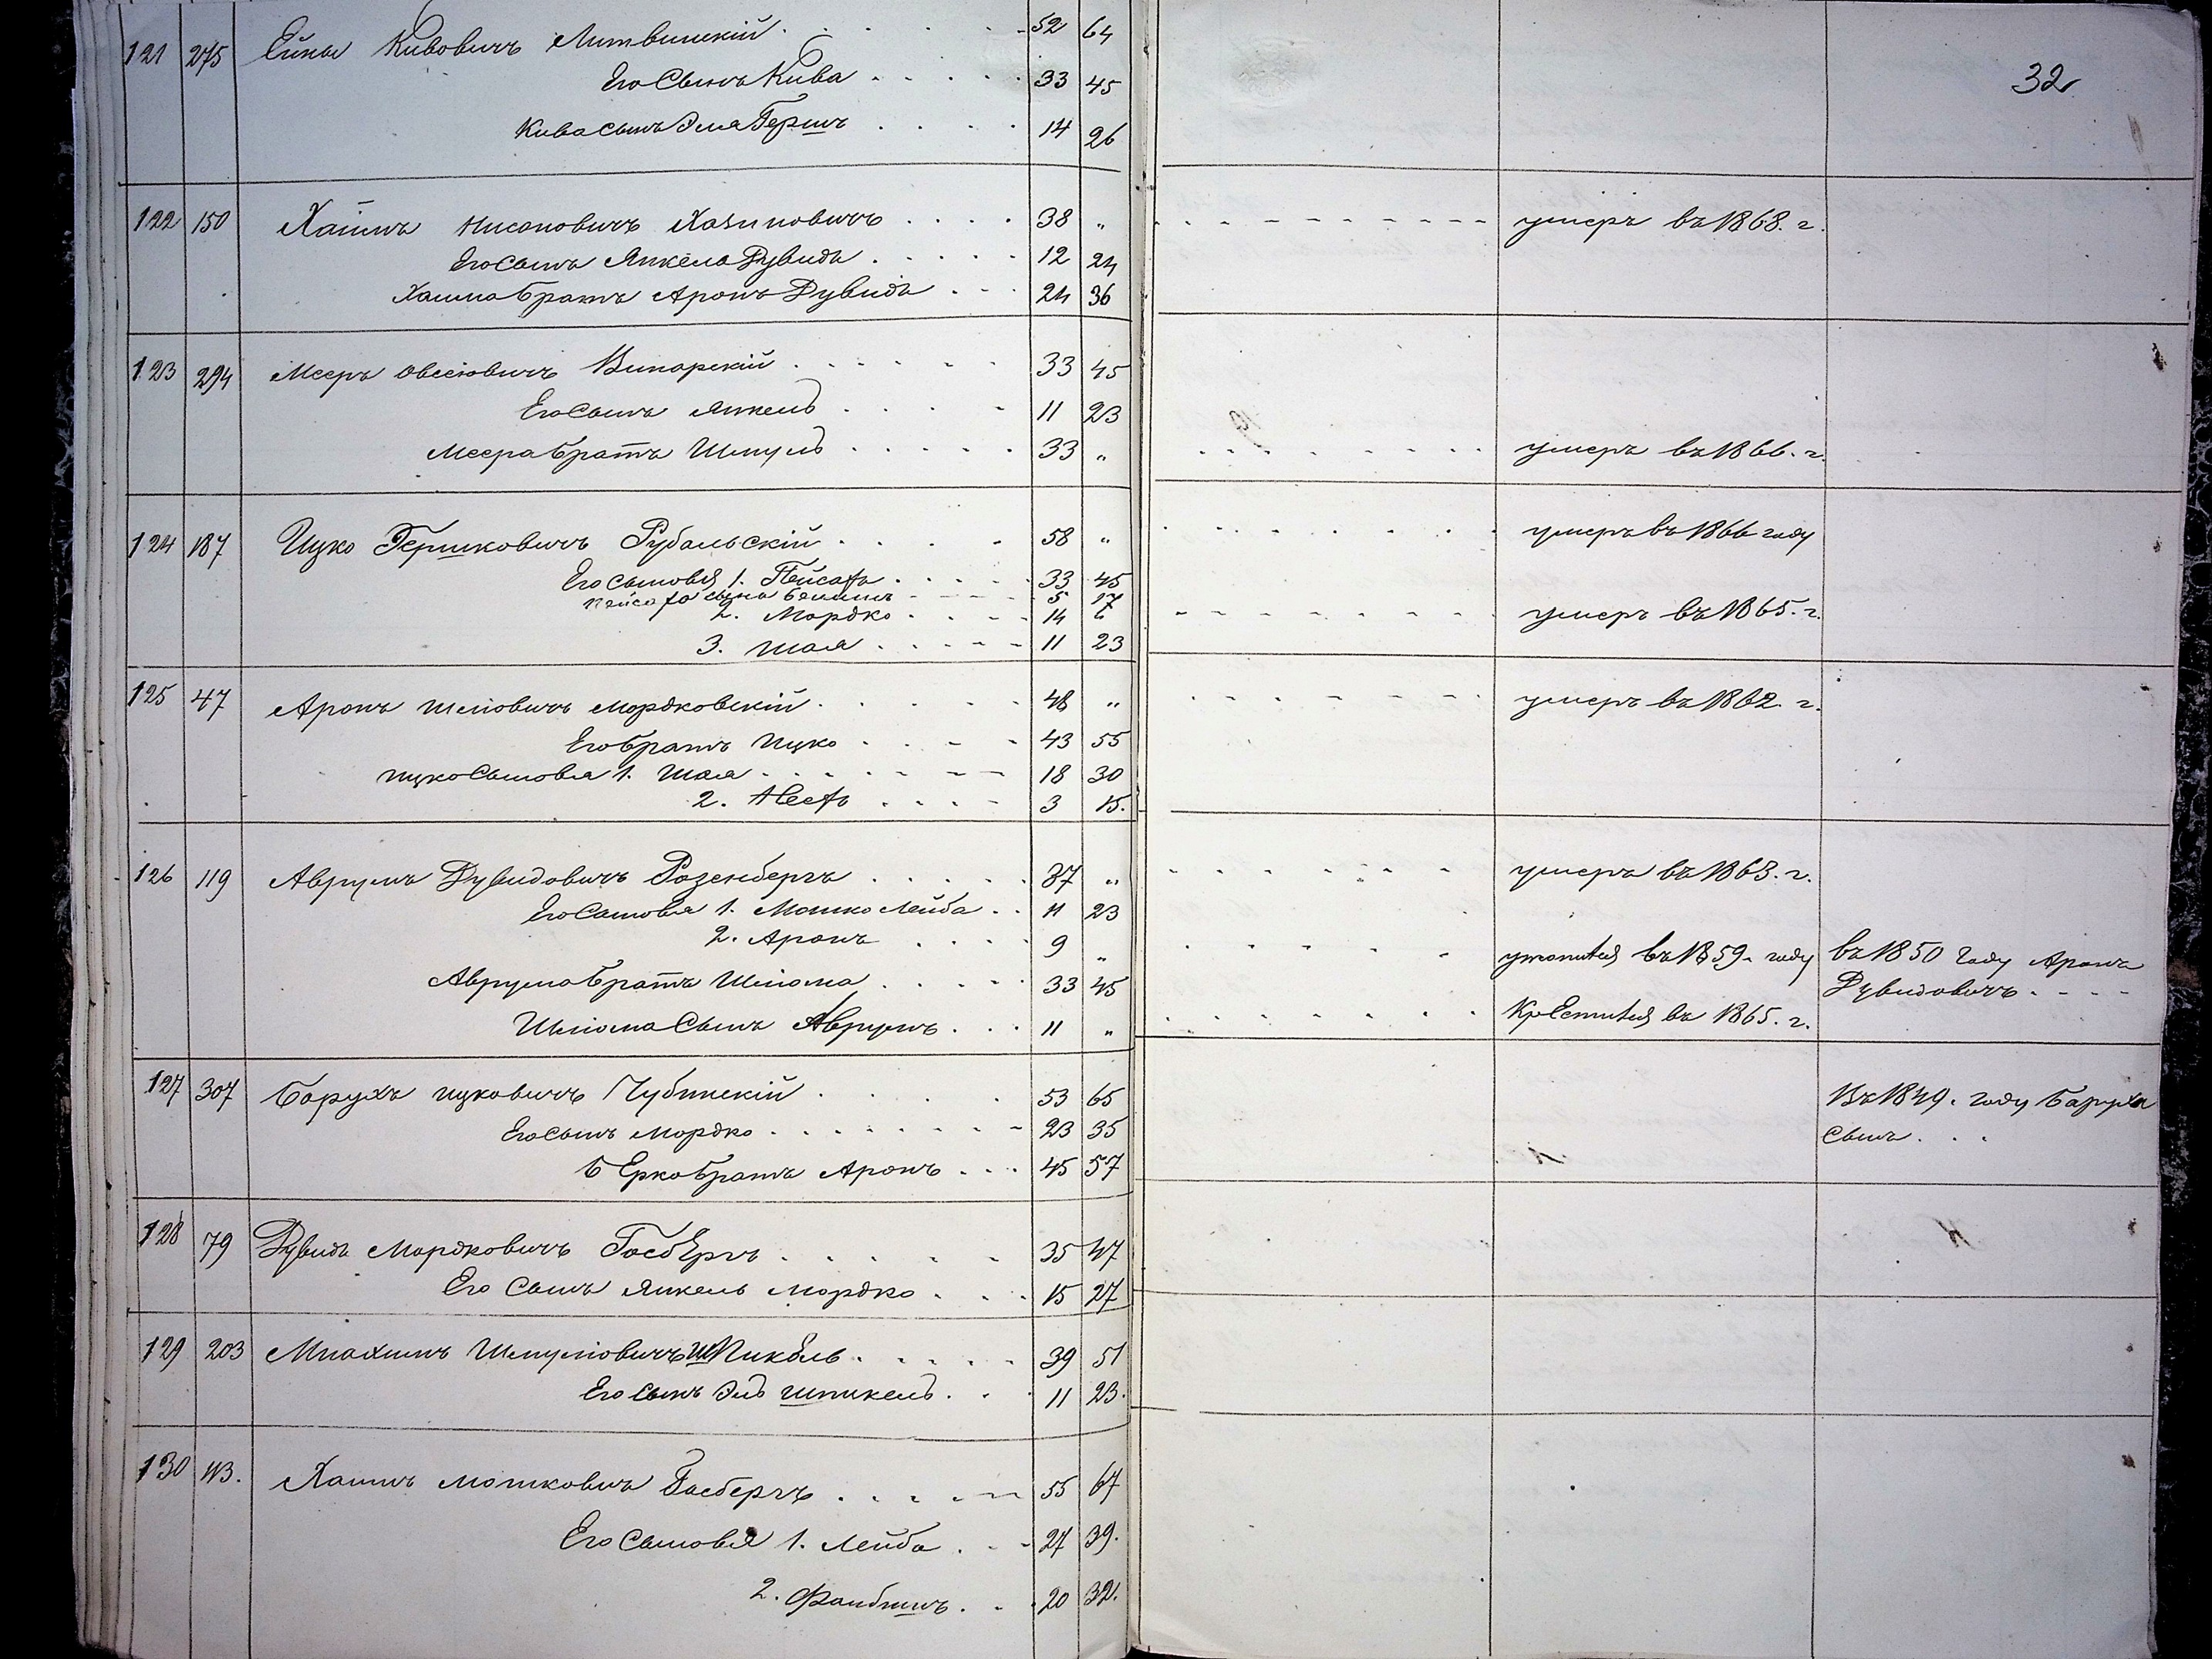 32
121 275 Ейны Кивовичъ Литвинскій 52 64
Его Сынъ Кива 33 45
Кива сынъ Эля Гершъ 14 26
122 150 Хаимъ Нисановичъ Хазиновичъ 38 „ умеръ въ 1868. г.
Его Сынъ Янкель Дувидъ 12 24
Хаима братъ Аронъ Дувидъ 24 36
123 294 Мееръ Овсіовичъ Винарскій 33 45
Его Сынъ Янкель 11 23
Меера братъ Шмуль 33 „ умеръ въ 1866. г.
124 187 Ицко Гершковичъ Рубальскій 58 „ умеръ въ 1866 году
Его сыновья 1. Пейсахъ 33 45
Пейсахъ сынъ 5 17
2. Мордко 14 умеръ въ 1865. г.
3. Шая 11 23
125 47 Аронъ Шліовичъ Мордковскій 48 „ умеръ въ 1862. г.
Его братъ Ицко 43 55
Ицко Сыновья 1. Шая 18 30
2. 3 15.
126 119 Аврумъ Дувидовичъ Розенбергъ 37 „ умеръ въ 1863. г.
Его Сыновья 1. Мошко Лейба 11 23
2. Аронъ 9 „ въ 1859. году въ 1850 году Аронъ
Аврума братъ Шліома 33 45 Дувидовичъ
Шліома Сынъ Аврумъ 11 „ Крестился въ 1865. г.
127 307 Борухъ Ицковичъ Чубинскій 53 65 Въ 1849. году Баруха
Его сынъ Мордко 23 35 Сынъ
Берко братъ Аронъ 45 57
128 79 Дувидъ Мордковичъ Госбергъ 35 47
Его Сынъ Янкель Мордко 15 27
129 203 Мнахимъ Шмуліовичъ Шпикель 39 51
Его Сынъ Эль Шпикель 11 23.
130 113. Хаимъ Мошковичъ Госбергъ 55 67
Его Сыновья 1. Лейба 27 39.
2. Файбишъ 20 32.